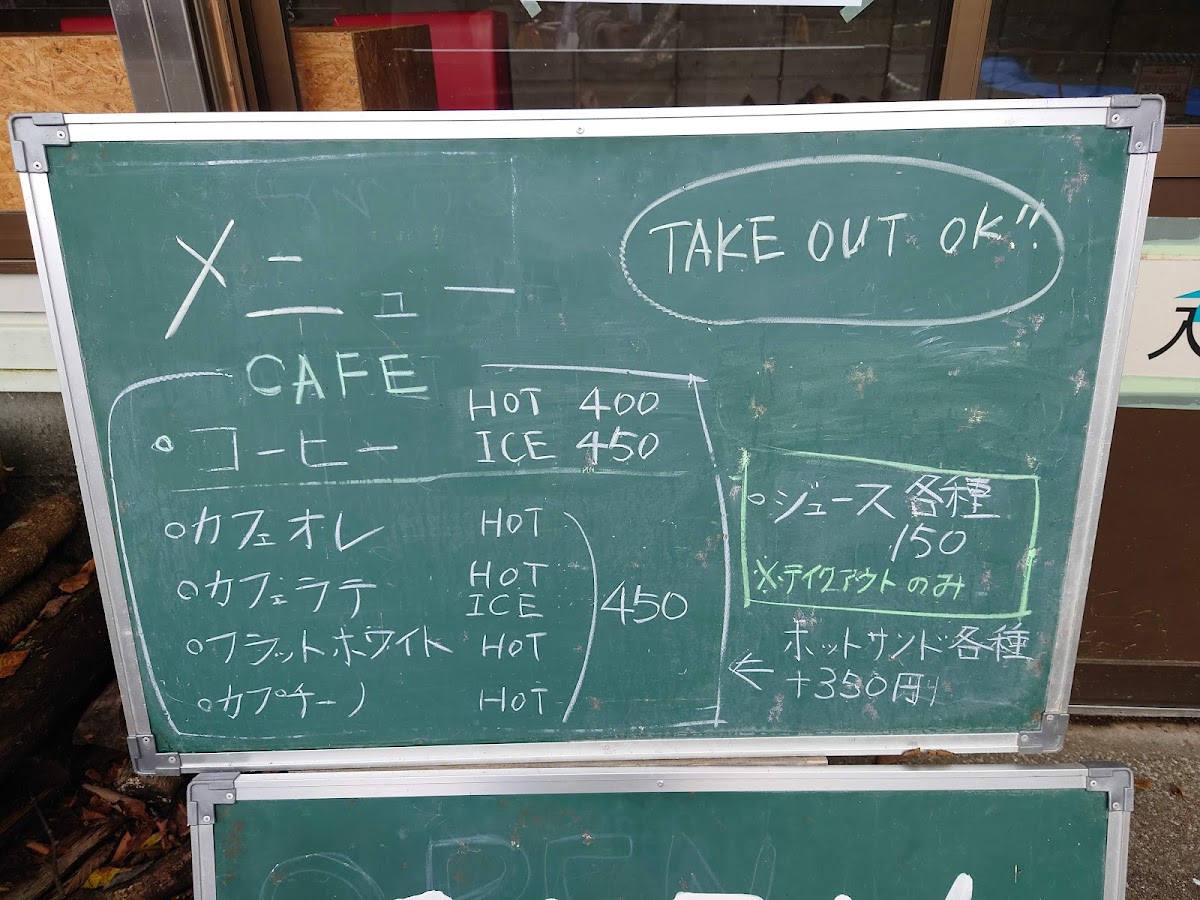 メニュー
TAKE OUT OK!!
CAFE
○コーヒー HOT 400
ICE 450
○カフェオレ HOT
○カフェラテ HOT
ICE
○フラットホワイト HOT
○カプチーノ HOT
450
○ジュース各種
150
※テイクアウトのみ
ホットサンド各種
←+350円
OPEN